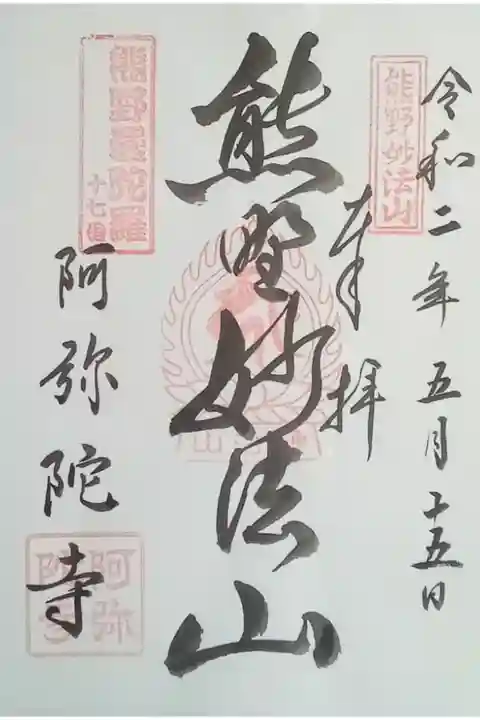 令和二年五月十五日
熊野妙法山
奉拝
熊野妙法山
熊野曼陀羅
十七番
阿弥陀寺
阿弥陀寺